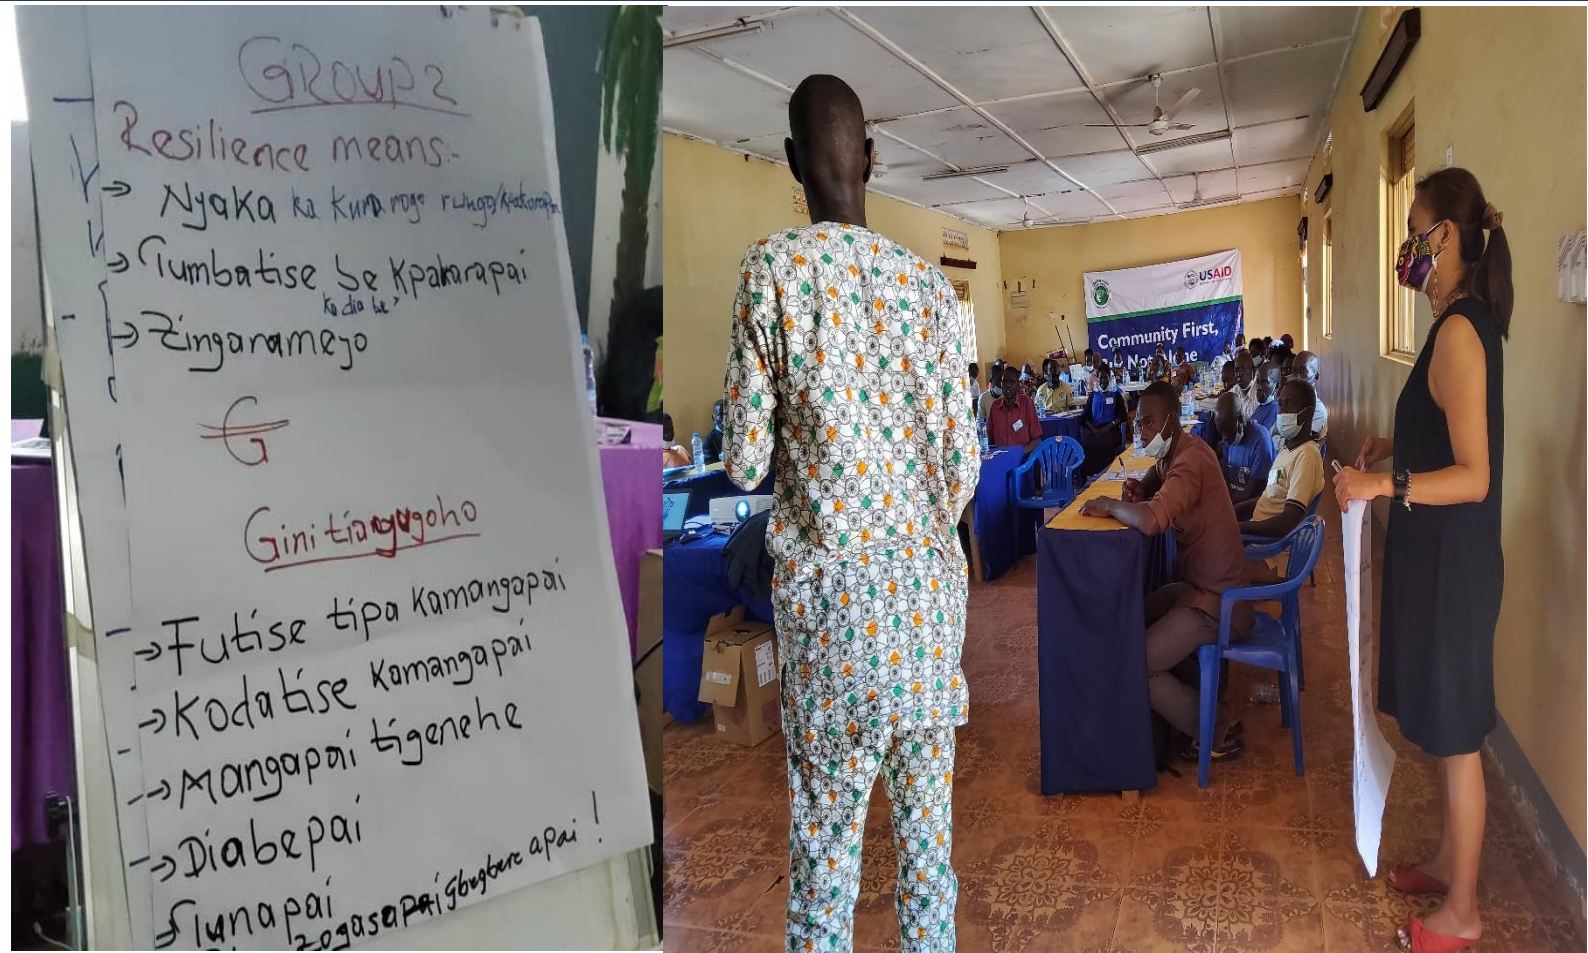 GROUP 2
Resilience means:-
→ Nyaka ka kura rogo rungo/
→ Tumbatise be Kpakarapai
ka dia be
→ Zingaramejo
G
Ginitiangagoho
→ Futise tipa Kamangapai
→ Kodatise Kamangapai
→ Mangapai tigenehe
→ Diabepai
→ Tunapai
zogasapai gbegbere apai!
USAID
Community First,
Not Alone